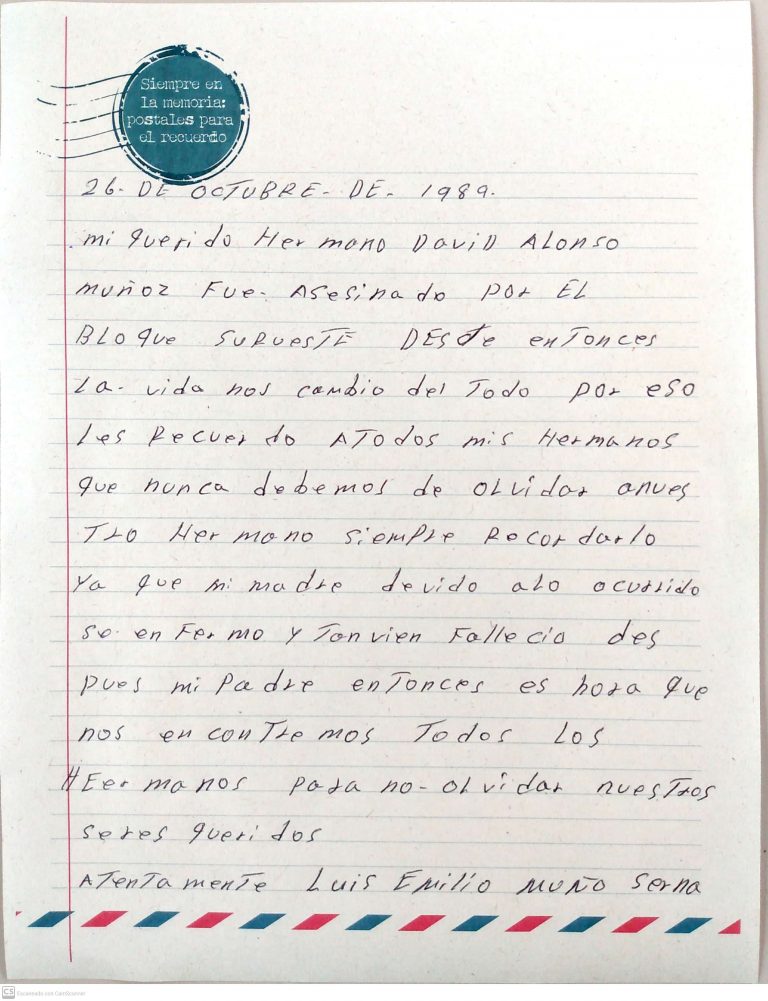 Siempre en
la memoria:
postales para
el recuerdo
26- DE OCTUBRE- DE- 1989.
mi querido Hermano DAVID ALONSO
muñoz Fue- Asesinado por EL
BLOque SURuesTE DESde enTonces
La- vida nos cambio del Todo por eso
Les Recuerdo ATodos mis Hermanos
que nunca debemos de olvidar anues
Tro Hermano siempre Recordarlo
Ya que mi madre devido alo ocurrido
se- enFermo y Tanvien Fallecio des
pues mi Padre enTonces es hora que
nos enconTremos Todos Los
HEermanos para no- olvidar nuesTros
seres queridos
ATenTamenTe Luis Emilio muño serna
CS Escaneado con CamScanner